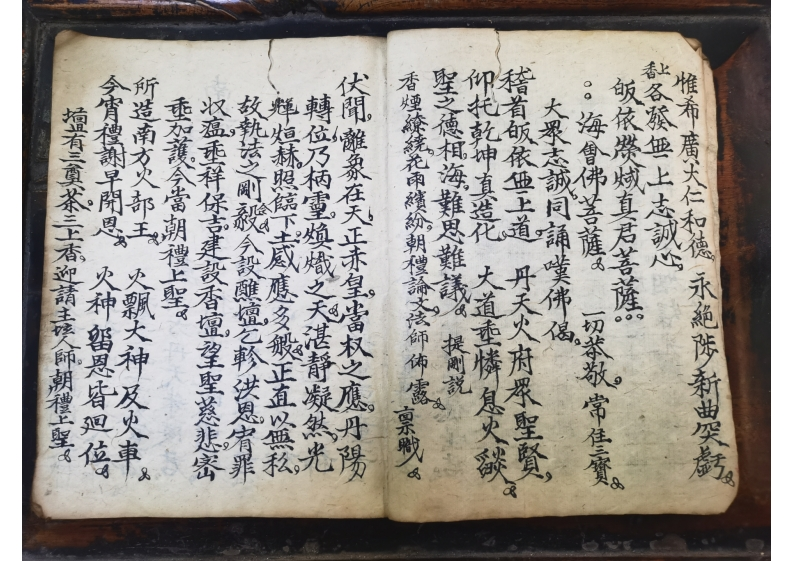 惟希廣大仁和德。永絕陟新曲突虧。
上香各發無上志誠心。
皈依熒惑真君菩薩。
海會佛菩薩。一切恭敬。常住三寶。
大眾志誠同誦嘆佛偈。
稽首皈依無上道。丹天火府眾聖賢。
仰托乾坤真造化 大道垂憐息火燄。
聖之德相海。難思難議。提剛説
香煙繚繞。花雨繽紛。朝禮論文法師佈露。禀職
伏聞。離象在天。正赤皇當权之應。丹陽
轉位。乃柄靈熾之天。湛靜凝然。光
輝烜赫。照臨下土。感應多般。正直以無私。
故執法之剛毅。今設醮壇。乞軫洪恩。宥罪
収瘟。垂祥保吉。建設香壇。望聖慈悲。密
垂加護。今當朝禮上聖。
所造南方火部王 火飄大神及火車
今宵禮謝早開恩 火神留恩皆迴位
壇有三奠茶。三上香。迎請主坛人師。朝禮上聖。